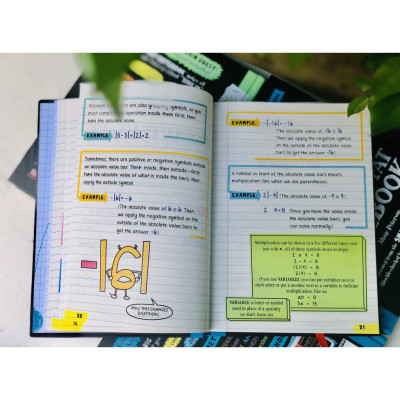 Absolute value bars are also grouping symbols, so you
must complete the operation inside them first, then
take the absolute value.
EXAMPLE: |5-3|=|2|=2
Sometimes, there are positive or negative symbols outside
an absolute value bar. Think: inside, then outside—first
take the absolute value of what is inside the bars, then
apply the outside symbol.
EXAMPLE: -|6|=-6
(The absolute value of 6 is 6. Then
we apply the negative symbol
on the outside of the absolute
value bars to get the answer -6.)
-|6|
NOW THIS CHANGES
EVERYTHING.
20
EXAMPLE: -|-16|=-16
(The absolute value of -16 is 16.
Then we apply the negative
symbol on the outside of
the absolute value
bars to get the answer -16.)
A number in front of the absolute value bars means
multiplication (like when we use parentheses).
EXAMPLE: 2|-4| (The absolute value of -4 is 4.)
2·4=8 (Once you have the value inside
the absolute value bars, you
can solve normally.)
Multiplication can be shown in a few different ways—not
just with x. All of these symbols mean multiply:
2 x 4 = 8
2 · 4 = 8
(2)(4) = 8
2(4) = 8
If you use VARIABLES, you can put variables next to
each other or put a number next to a variable to indicate
multiplication, like so:
ab = 8
3x = 15
VARIABLE: a letter or symbol
used in place of a quantity
we don't know yet
21